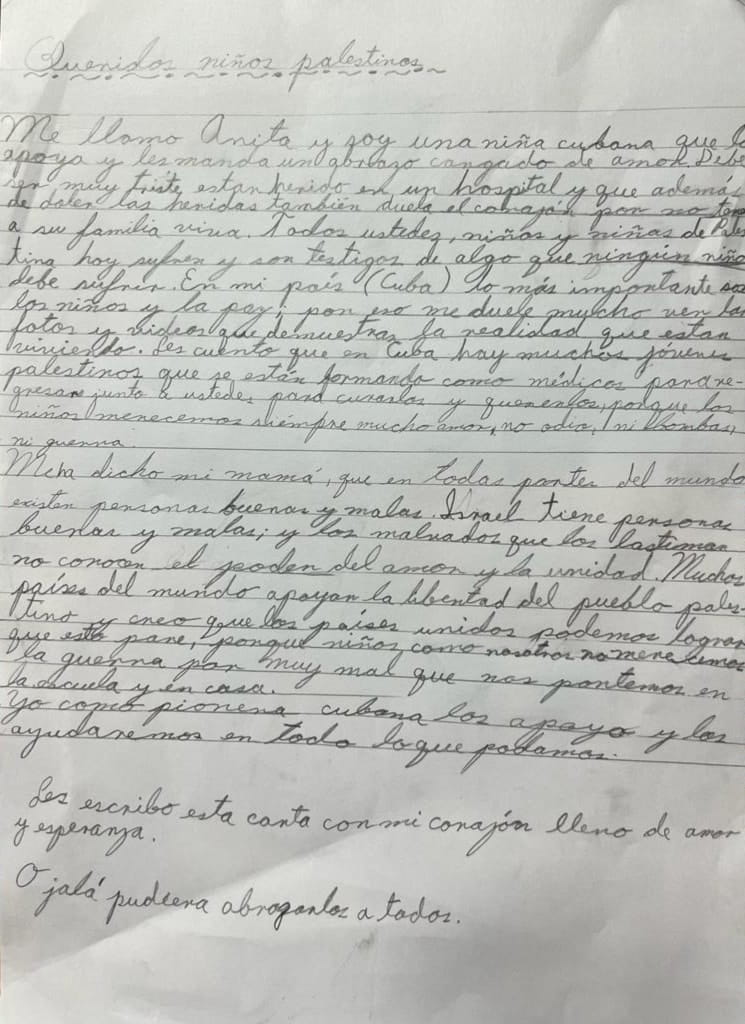 Queridos niños palestinos
Me llamo Anita y soy una niña cubana que lo
apoya y les manda un abrazo cargado de amor. Debe
ser muy triste estar herido en un hospital y que además
de doler las heridas también duela el corazón por no tener
a su familia viva. Todos ustedes, niños y niñas de Pales
tina hoy sufren y son testigos de algo que ningún niño
debe sufrir. En mi país (Cuba) lo más importante son
los niños y la paz; por eso me duele mucho ver las
fotos y videos que demuestran la realidad que estan
viviendo. Les cuento que en Cuba hay muchos jóvenes
palestinos que se están formando como médicos para re-
gresar junto a ustedes para curarlos y quererlos, porque los
niños merecemos siempre mucho amor, no odio, ni bombas,
ni guerra.
Me ha dicho mi mamá, que en todas partes del mundo
existen personas buenas y malas. Israel tiene personas
buenas y malas; y los malvados que los lastiman
no conocen el poder del amor y la unidad. Muchos
países del mundo apoyan la libertad del pueblo pales-
tino y creo que los países unidos podemos lograr
que esto pare, porque niños como nosotros no merecemos
la guerra por muy mal que nos portemos en
la escuela y en casa.
Yo como pionera cubana los apoyo y los
ayudaremos en todo lo que podamos.
Les escribo esta carta con mi corazón lleno de amor
y esperanza.
Ojalá pudiera abrazarlos a todos.